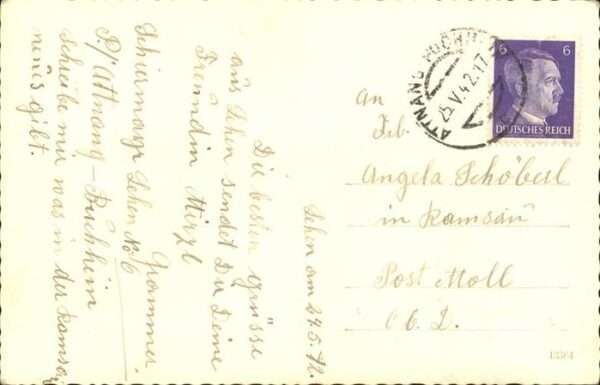 6 6
DEUTSCHES REICH
ATTNANG-PUCHHEIM
25.V.42.17
An
Frl.
Angela Schöberl
in Ramsau
Post Molln
Ob. D.
Lehen am 24.5.42.
Die besten Grüsse
aus Lehen sendet Dir Deine
Freundin Mirzl
Grammer
Schirmayr Lehen No 6
P./Attnang-Buchheim
Schreibe mir was in der Ramsau
neues gibt.